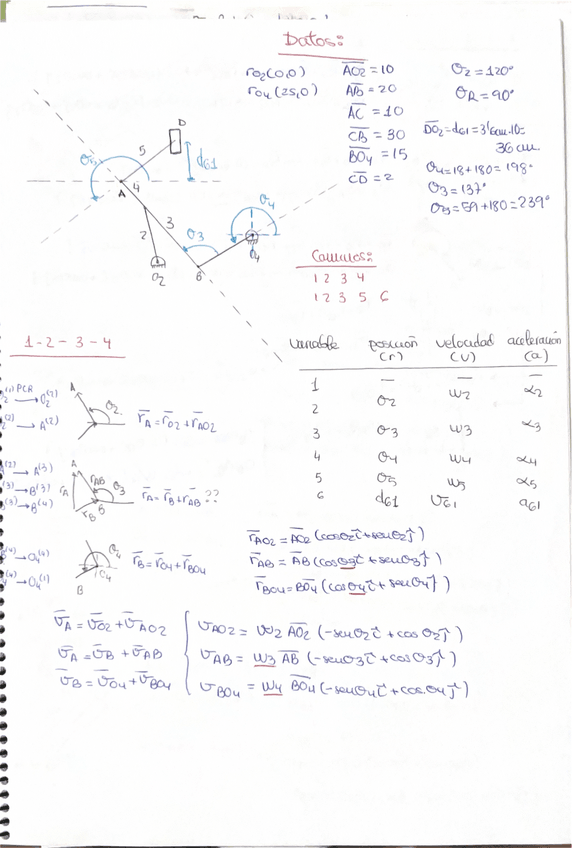 Datos:
rO2(0,0) AO2 = 10 θ2 = 120°
rO4(25,0) AB = 20 θR = 90°
AC = 10
CB = 30 DO2 = d61 = 3'6cm.10 =
BO4 = 15 36 cm.
CD = 2 θ4 = 18+180 = 198°
θ3 = 137°
θ5 = 59+180 = 239°
D
5
d61
θ5
4
A
3
θ4
2
θ3
O2
B
O4
Caminos:
1 2 3 4
1 2 3 5 6
1-2-3-4
variable posición (r) velocidad (v) aceleración (a)
1 — — —
2 θ2 ω2 α2
3 θ3 ω3 α3
4 θ4 ω4 α4
5 θ5 ω5 α5
6 d61 v61 a61
PCR
→ O2(2)
→ A(2)
A
θ2
r̄A = r̄O2 + r̄AO2
→ A(3)
→ B(3)
→ B(4)
A
rA
rAB
θ3
rB
B
r̄A = r̄B + r̄AB ??
→ O4(4)
→ O4(1)
θ4
O4
B
r̄B = r̄O4 + r̄BO4
r̄AO2 = AO2 (cosθ2 i + senθ2 j)
r̄AB = AB (cosθ3 i + senθ3 j)
r̄BO4 = BO4 (cosθ4 i + senθ4 j)
v̄A = v̄O2 + v̄AO2
v̄A = v̄B + v̄AB
v̄B = v̄O4 + v̄BO4
vAO2 = ω2 AO2 (-senθ2 i + cosθ2 j)
vAB = ω3 AB (-senθ3 i + cosθ3 j)
vBO4 = ω4 BO4 (-senθ4 i + cosθ4 j)